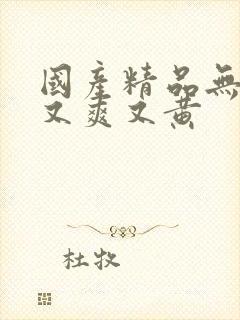 國產精品無
又爽又黃
杜牧